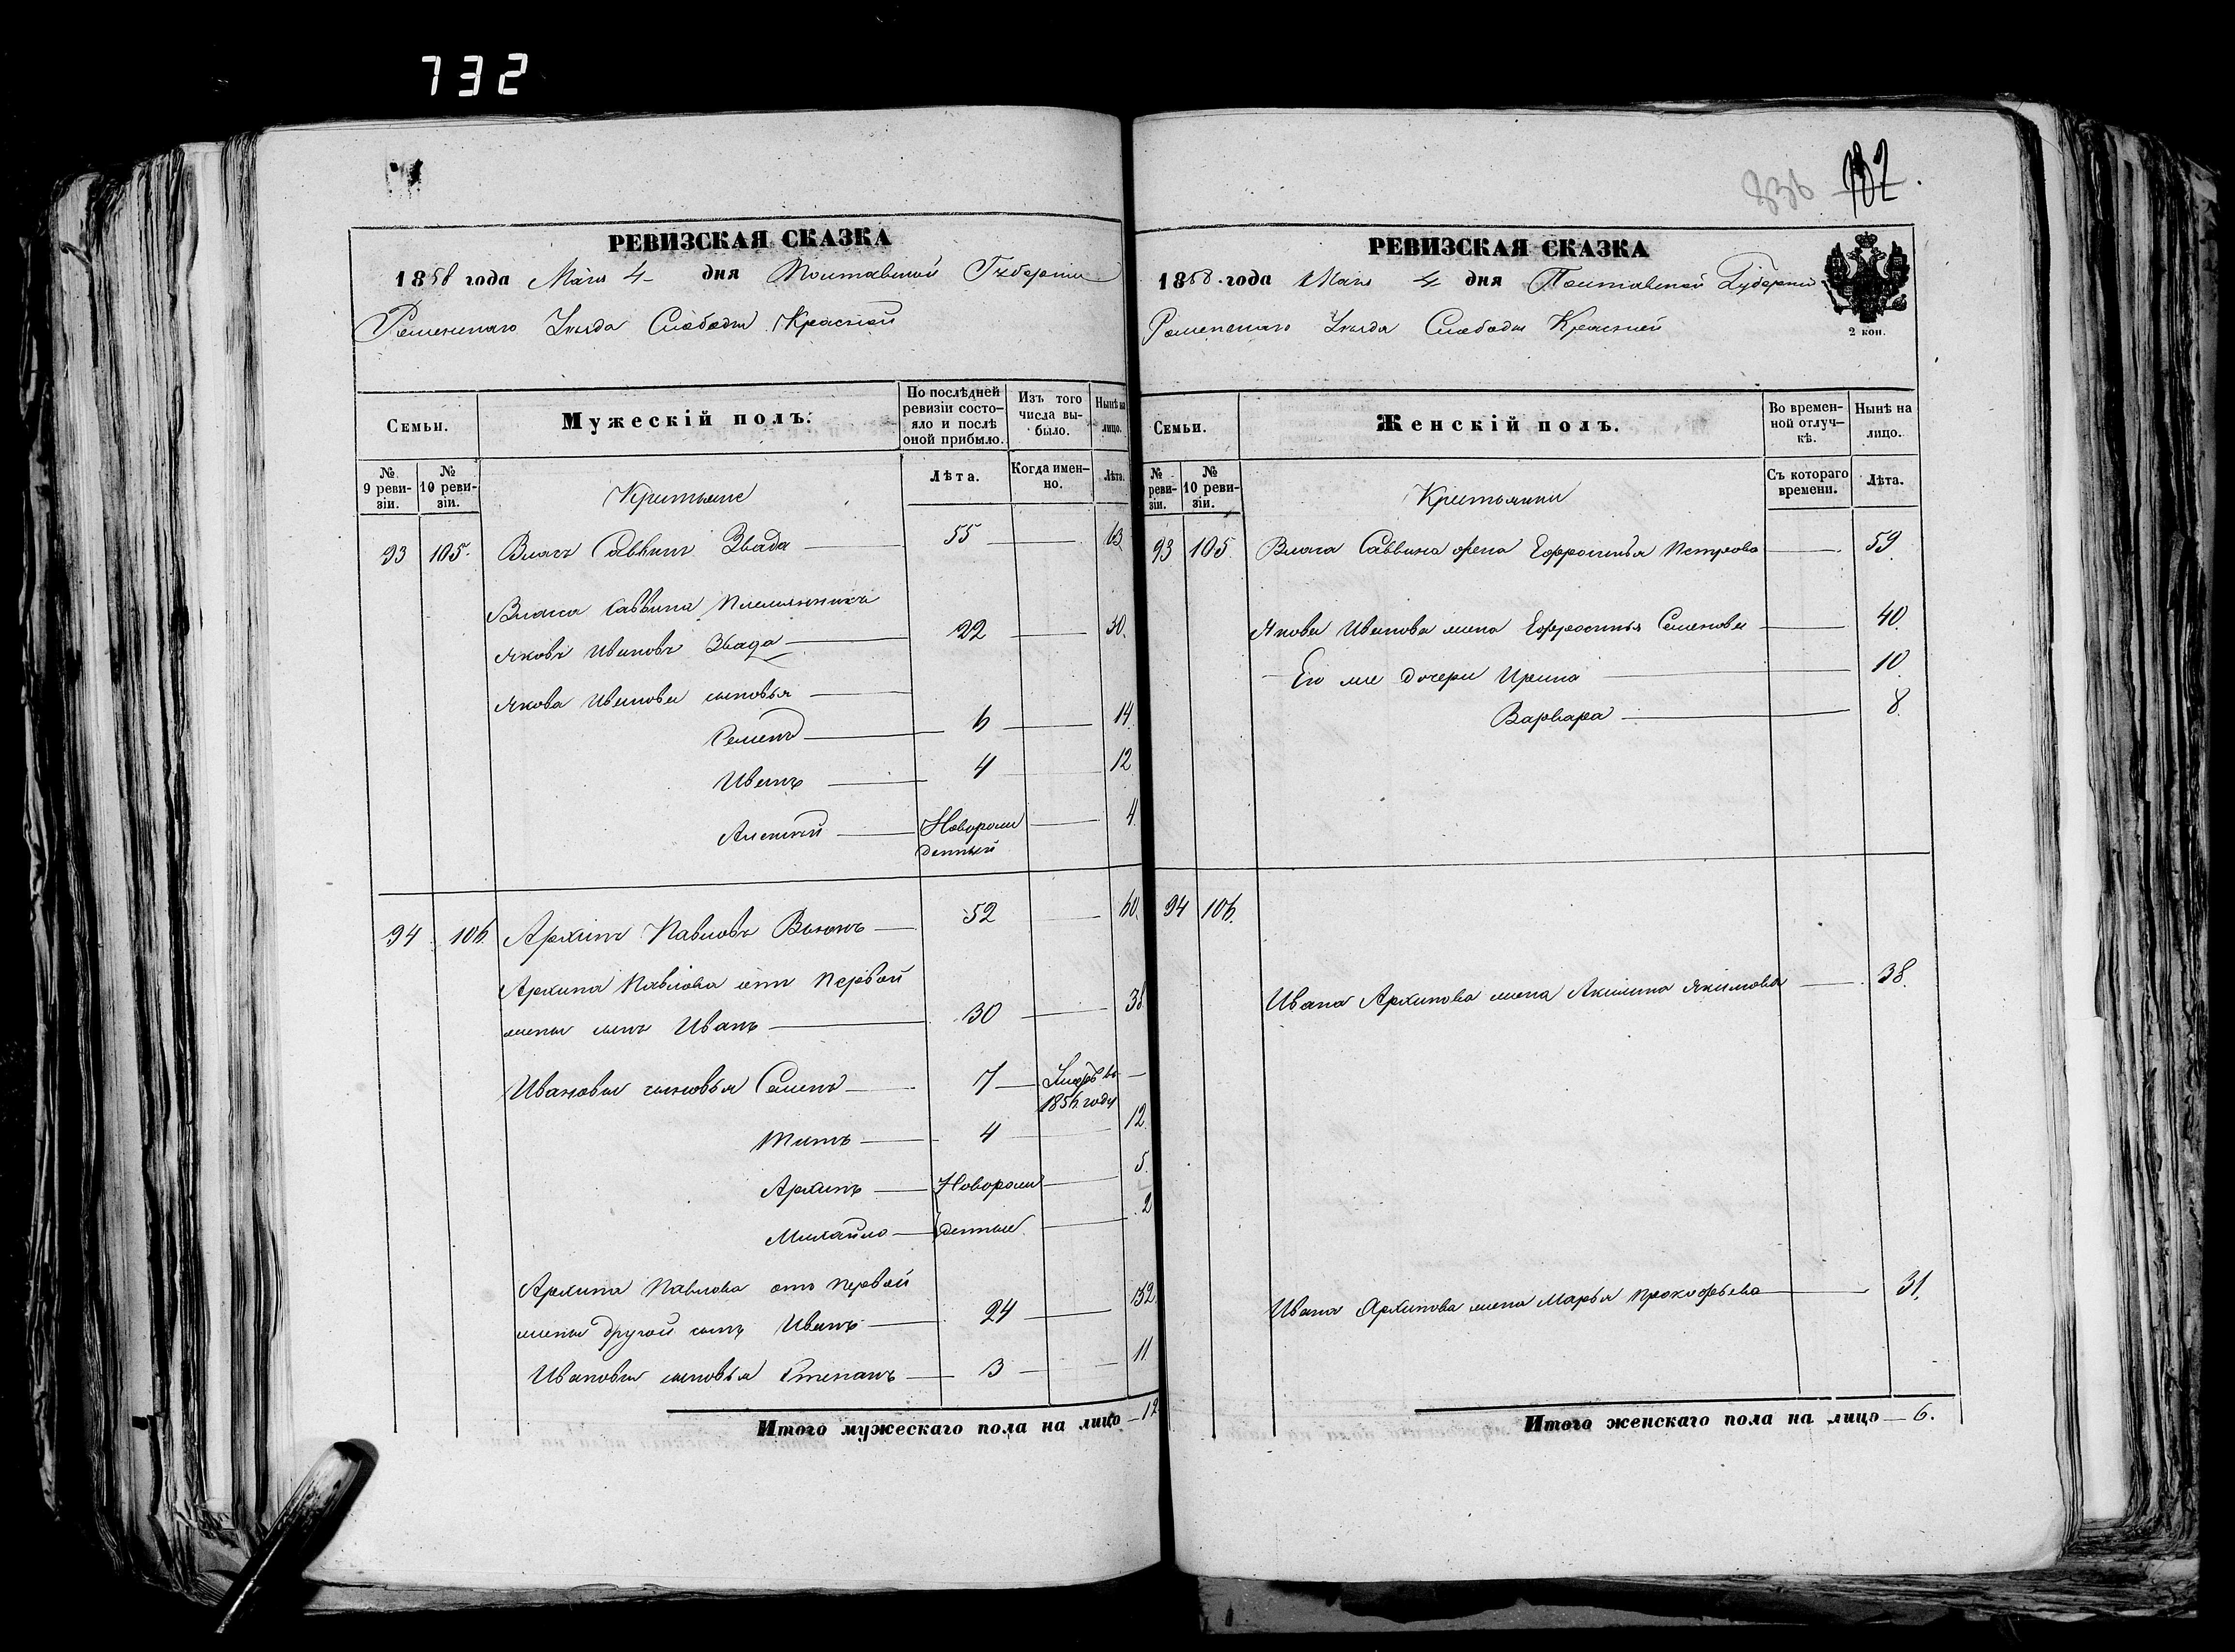 732
РЕВИЗСКАЯ СКАЗКА
1858 года Маія 4 дня Полтавской Губерніи
Роменскаго Уѣзда Слободы Красной
Семьи.
Мужескій полъ.
По послѣдней ревизіи состояло и послѣ оной прибыло.
Изъ того числа выбыло.
Нынѣ на лицо.
№ 9 ревизіи.
№ 10 ревизіи.
Крестьяне
Лѣта.
Когда именно.
Лѣта.
93 105. Власъ Саввинъ Звада 55 63
Власа Саввина племянникъ
Яковъ Ивановъ Звада 22 30.
Якова Иванова сыновья
Семенъ 6 14.
Иванъ 4 12
Алексей Новорож 4.
денный
94 106. Архипъ Павловъ Вьюнъ 52 60.
Архипа Павлова отъ первой
жены сынъ Иванъ 30 38
Ивановы сыновья Семенъ 7 Умеръ въ
1856 году
Титъ 4 12.
Архипъ Новорож 5.
Михайло денные 2
Архипа Павлова отъ первой
жены другой сынъ Иванъ 24 32.
Ивановы сыновья Степанъ 3 11
Итого мужескаго пола на лицо 12
836 732.
РЕВИЗСКАЯ СКАЗКА
1858 года Маія 4 дня Полтавской Губерніи
2 коп.
Роменскаго Уѣзда Слободы Красней
Семьи.
Женскій полъ.
Во временной отлучкѣ.
Нынѣ на лицо.
№ ревизіи.
№ 10 ревизіи.
Крестьянки
Съ котораго времени.
Лѣта.
93 105. Власа Саввина жена Ефросинья Петрова 59.
Якова Иванова жена Ефросинья Семенова 40.
Его же дочери Ирина 10.
Варвара 8.
94 106.
Ивана Архипова жена Акилина Якимова 38.
Ивана Архипова жена Марья Прокофьева 31.
Итого женскаго пола на лицо 6.